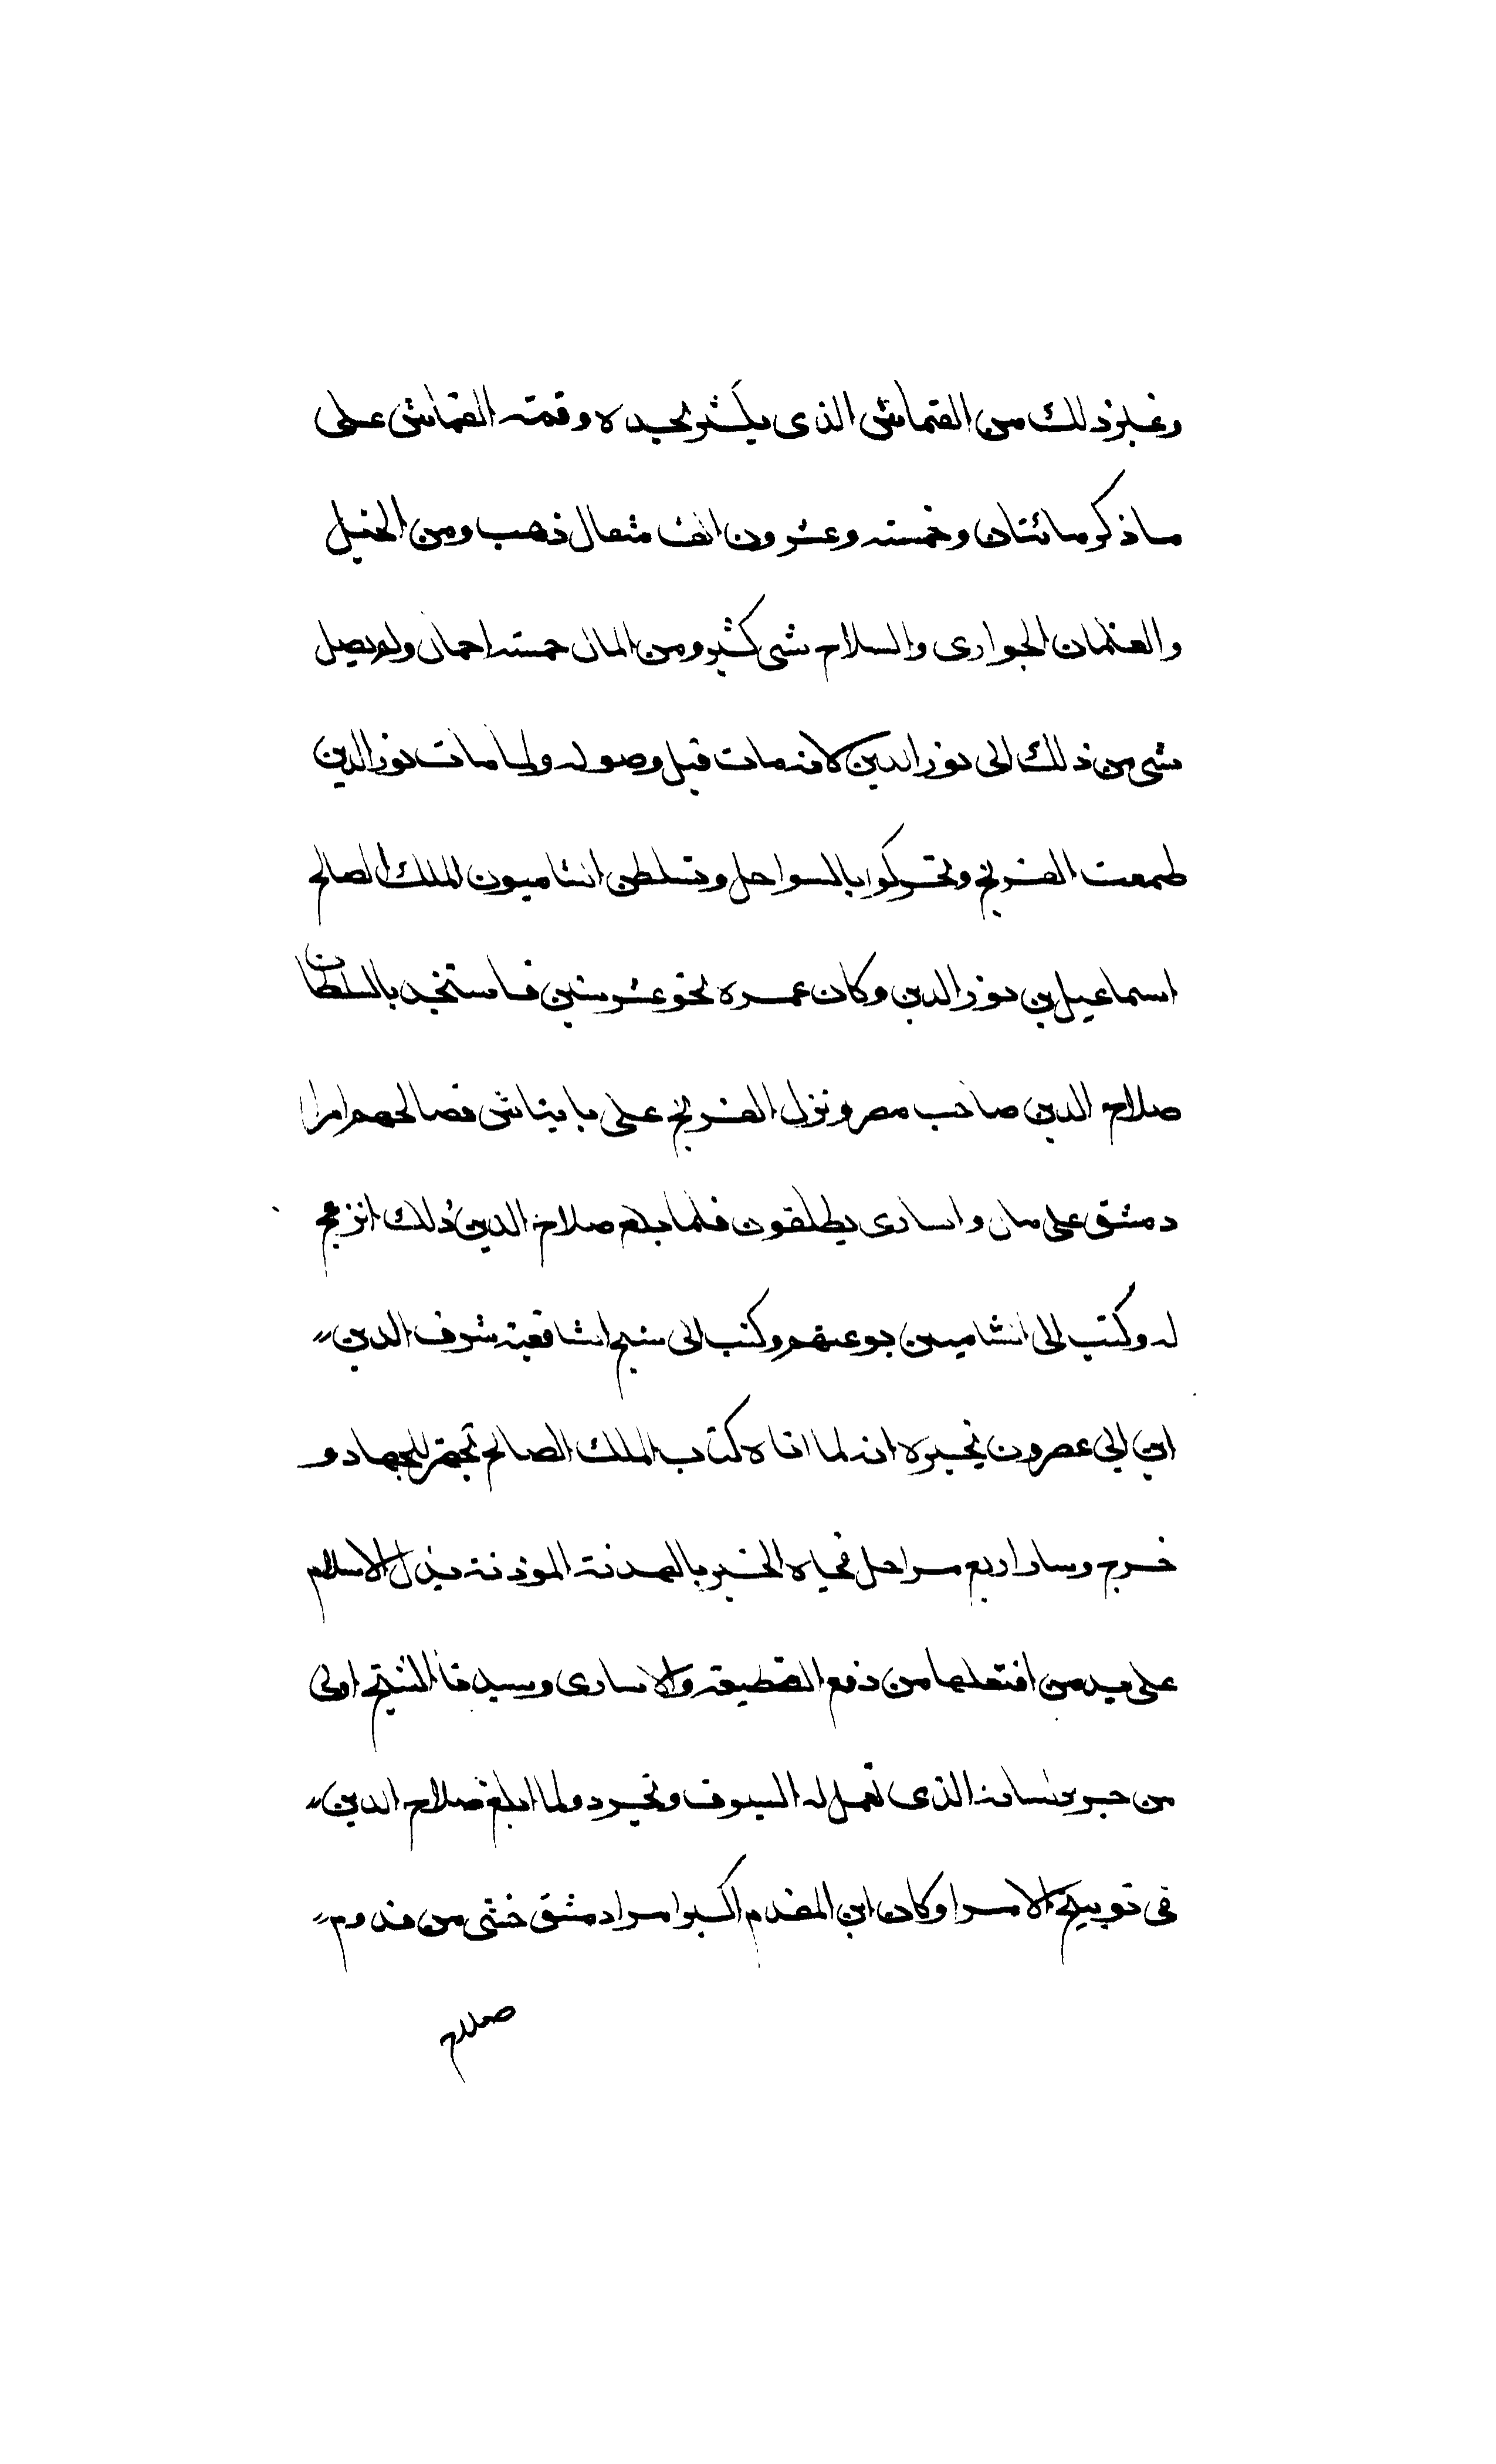 وغير ذلك من القماش الذى يكثر تحيده وقمته القماش على
ما ذكر مائتان وخمسه وعشرون الف مثقال ذهب ومن الخيل
والغلمان الجوارى والسلاح شى كثير ومن المال خمسه احمال ولم يصل
شى من ذلك الى نور الدين لانه مات قبل وصوله ولما مات نور الدين
طمعت الفرنج وتحركوا بالسواحل وتسلطن الشاميون الملك الصالح
اسماعيل بن نور الدين وكان عمره نحو عشر سنين فاستنجد بالسلطان
صلاح الدين صاحب مصر ونزل الفرنج على بانياش فصالحهم امرا
دمشق على مال واسارى يطلقون فلما بلغ صلاح الدين ذلك انزعج
له وكتب الى الشاميين يوعنهم وكتب الى شيخ الشافعية شرف الدين
ابن ابي عصرون يخبره انه لما اتاه كتاب الملك الصالح تجهز للجهاد و
خرج وسار اربع مراحل فجاه الخبر بالهدنة الموذنة بذل الاسلام
على يد من افتعلها من دفع القطيعه والاسارى وسيدنا الشيخ اولى
من جرد لسانه الذى تعمل له السيوف وتجرد ولما ابلغ صلاح الدين
فى توبيخ الامرا وكان ابن المقدم اكبر امرا دمشق خشى من قدوم
صلاح